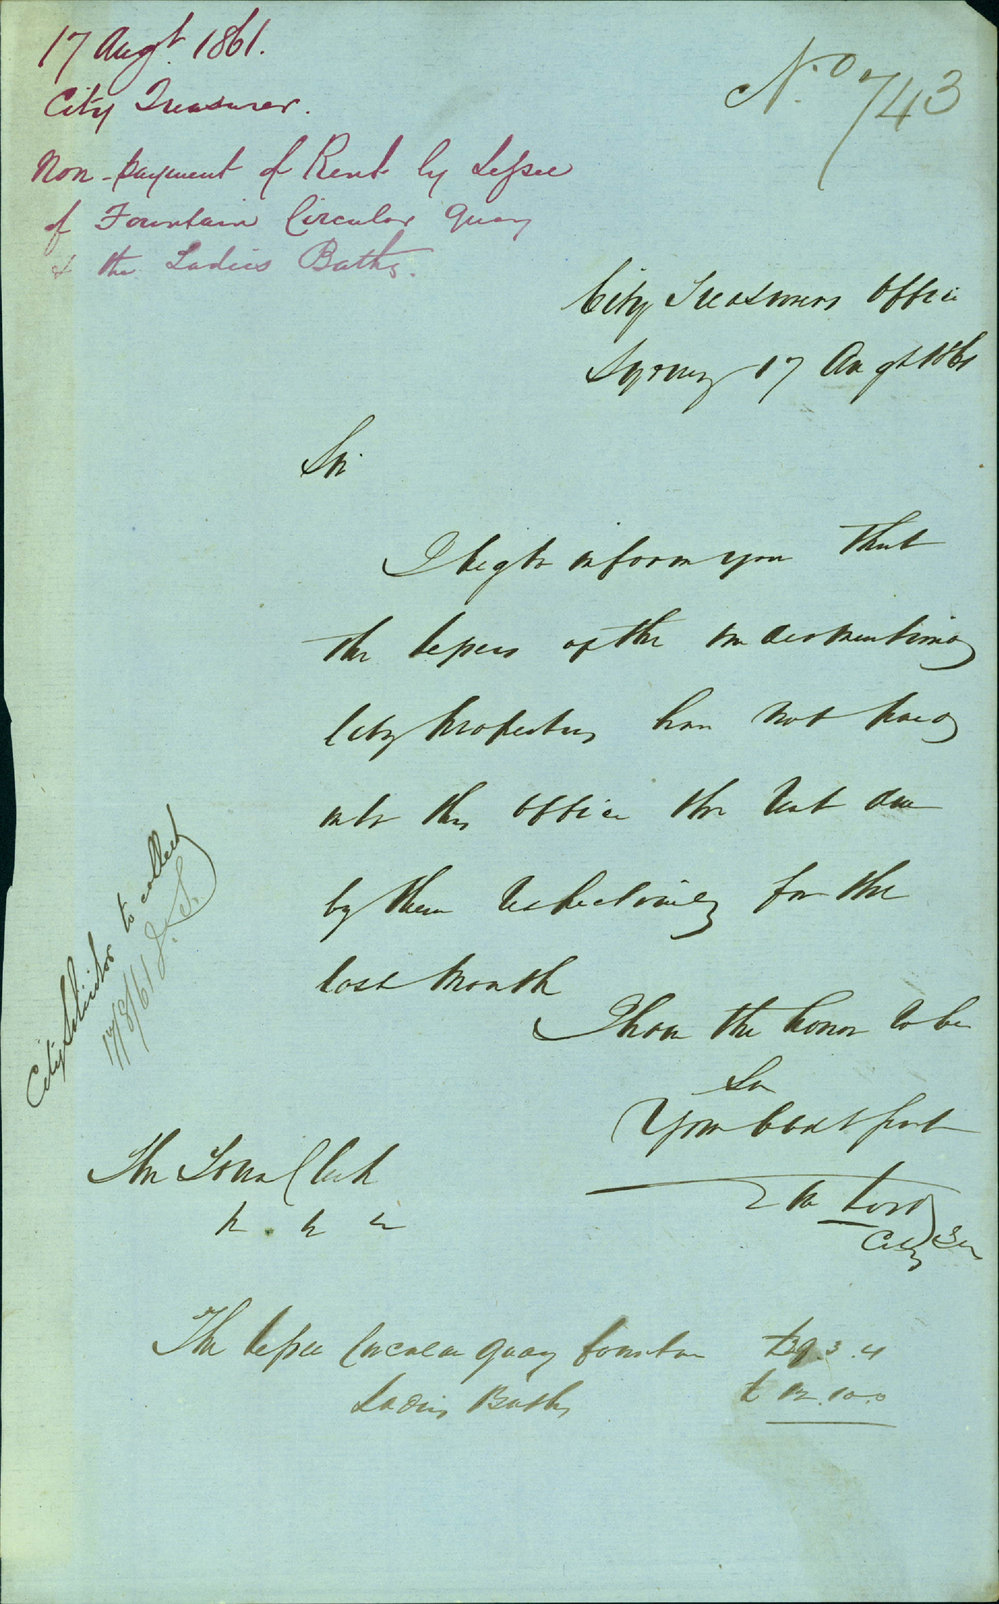 17 Augt. 1861.
City Treasurer.
Non-payment of Rent by Lessee
of Fountain Circular Quay
& the Ladies Baths.
No. 743
City Treasurers Office
Sydney 17 Augt 1861
Sir
I beg to inform you that
the lessees of the undermentioned
City properties have not paid
into this office the rent due
by them respectively for the
last month
I have the honor to be
Sir
Your obedt servt
City Tr
City Solicitor to collect
17/8/61
The Town Clerk
The lessee Circular Quay fountain £29.3.4
Ladies Baths £12.10.0